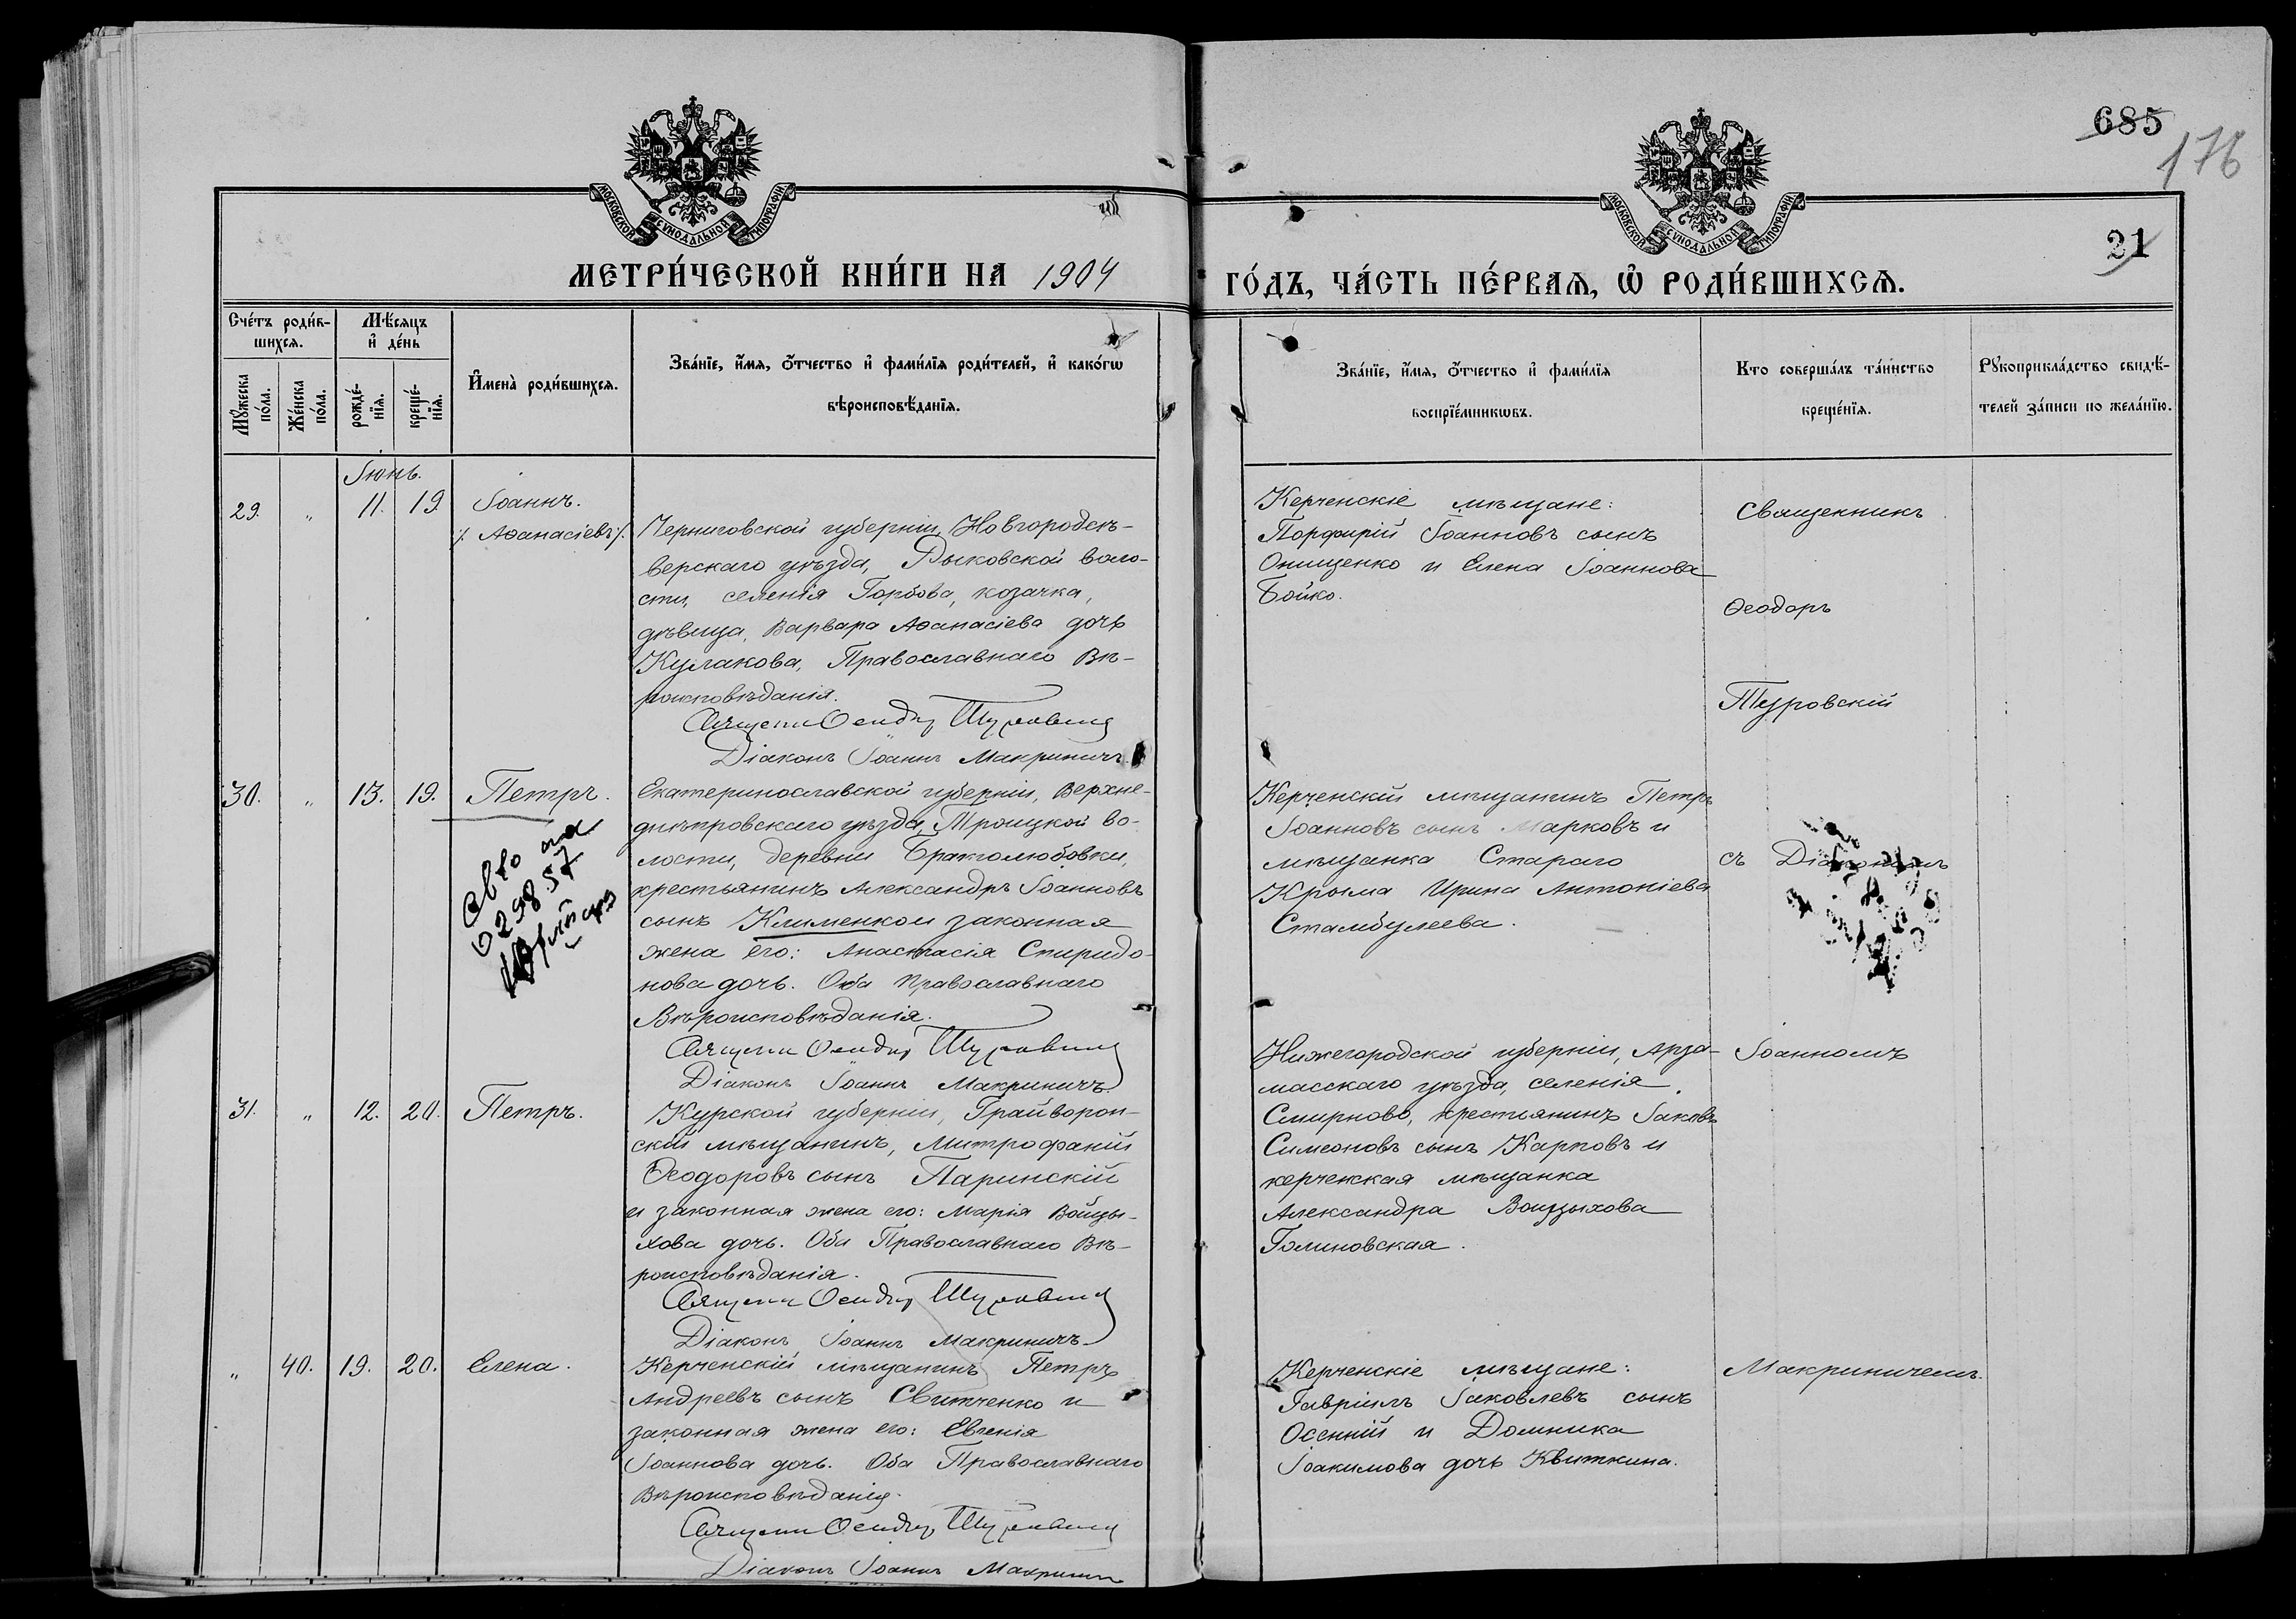 685
176
21
МОСКОВСКОЙ СѴНОДАЛЬНОЙ ТИПОГРАФІИ
МОСКОВСКОЙ СѴНОДАЛЬНОЙ ТИПОГРАФІИ
МЕТРИ́ЧЕСКОЙ КНИ́ГИ НА 1904
ГО́ДЪ, ЧА́СТЬ ПЕ́РВАѦ, Ѽ РОДИ́ВШИХСѦ.
Сче́тъ роди́в-
шихсѧ.
Мѣ́сѧцъ
и҆ де́нь
Мꙋ́жеска
по́ла.
Же́нска
по́ла.
рожде́-
нїѧ.
креще́-
нїѧ.
И҆мена̀ роди́вшихсѧ.
Зва́нїе, и҆́мѧ, ѻ҆́тчество и҆ фами́лїѧ роди́телей, и҆ како́гѡ
вѣроисповѣ́данїѧ.
Зва́нїе, и҆́мѧ, ѻ҆́тчество и҆ фами́лїѧ
воспрїе́мникѡвъ.
Кто̀ соверша́лъ та́инство
креще́нїѧ.
Рꙋкоприкла́дство свидѣ́-
телей за́писи по жела́нїю.
Іюнь.
29. " 11. 19 Іоаннъ.
/. Аѳанасіевъ /.
Черниговской губерніи, Новгородсѣ-
верскаго уѣзда, Рыковской воло-
сти, селенія Горбова, козачка,
дѣвица, Варвара Аѳанасіева дочь
Кулакова, Православнаго Вѣ-
роисповѣданія.
Священ Ѳеодор Туровскій
Діаконъ Іоаннъ Макриничъ
Керченскіе мѣщане:
Порфирій Іоанновъ сынъ
Онищенко и Елена Іоаннова
Бойко.
Священникъ
Ѳеодоръ
Туровскій
30. " 13. 19. Петръ.
Св-во
298. 57
Екатеринославской губерніи, Верхне-
днѣпровскаго уѣзда, Троицкой во-
лости, деревни Братолюбовки,
крестьянинъ Александръ Іоанновъ
сынъ Клименко и законная
жена его: Анастасія Спиридо-
нова дочь. Оба Православнаго
Вѣроисповѣданія.
Священ Ѳеодор Туровскій
Діаконъ Іоаннъ Макриничъ
Керченскій мѣщанинъ Петръ
Іоанновъ сынъ Марковъ и
мѣщанка Стараго
Крыма Ирина Антоніева
Стамбулеева.
съ Діакономъ
31. " 12. 20. Петръ.
Курской губерніи, Грайворон-
скій мѣщанинъ, Митрофаній
Ѳеодоровъ сынъ Паринскій
и законная жена его: Марія Войцы-
хова дочь. Оба Православнаго Вѣ-
роисповѣданія.
Священ Ѳеодор Туровскій
Діаконъ Іоаннъ Макриничъ
Нижегородской губерніи, Арза-
масскаго уѣзда, селенія
Смирново, крестьянинъ Іаковъ
Симеоновъ сынъ Карповъ и
керченская мѣщанка
Александра Войцыхова
Голиновская.
Іоанномъ
" 40. 19. 20. Елена.
Керченскій мѣщанинъ Петръ
Андреевъ сынъ Свитченко и
законная жена его: Евгенія
Іоаннова дочь. Оба Православнаго
Вѣроисповѣданія.
Священ Ѳеодор Туровскій
Діаконъ Іоаннъ Макринич
Керченскіе мѣщане:
Гавріилъ Іаковлевъ сынъ
Осенній и Домника
Іоакимова дочь Квиткина.
Макриничемъ.